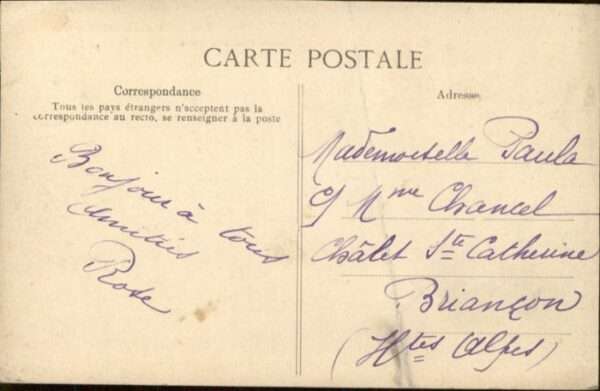 CARTE POSTALE
Correspondance
Tous les pays étrangers n'acceptent pas la
correspondance au recto, se renseigner à la poste
Bonjour à tous
Amitiés
Rose
Adresse
Mademoiselle Paula
c/ Mme Chancel
Châlet Ste Catherine
Briançon
(Htes Alpes)